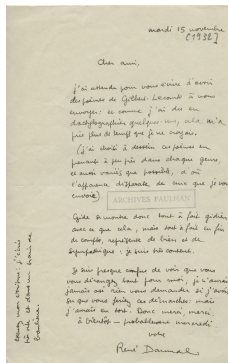 mardi 15 novembre
[1932]
Cher ami,
j'ai attendu pour vous écrire d'avoir
des poèmes de Gilbert-Lecomte à vous
envoyer: et comme j'ai dû en
dactylographier quelques uns, cela m'a
pris plus de temps que je ne croyais.
(j'ai choisi à dessein ces poèmes en
prenant à peu près dans chaque genre,
et aussi variés que possible, d'où
l'apparence disparate de ce que je vous
envoie)
ARCHIVES PAULHAN
Gide a montré donc tout à fait
avec ce que cela, mais tout à fait en fin
de compte, représente de bien et de
sympathique: je suis très content.
Je suis presque confus de voir que vous
vous dérangez tant pour moi; je n'aurais
jamais osé rien vous demander si j'avais
su que vous feriez ces démarches: mais
j'aurais eu tort. Donc merci, merci.
à bientôt - probablement mercredi
votre
René Daumal
excusez mon écriture: j'écris